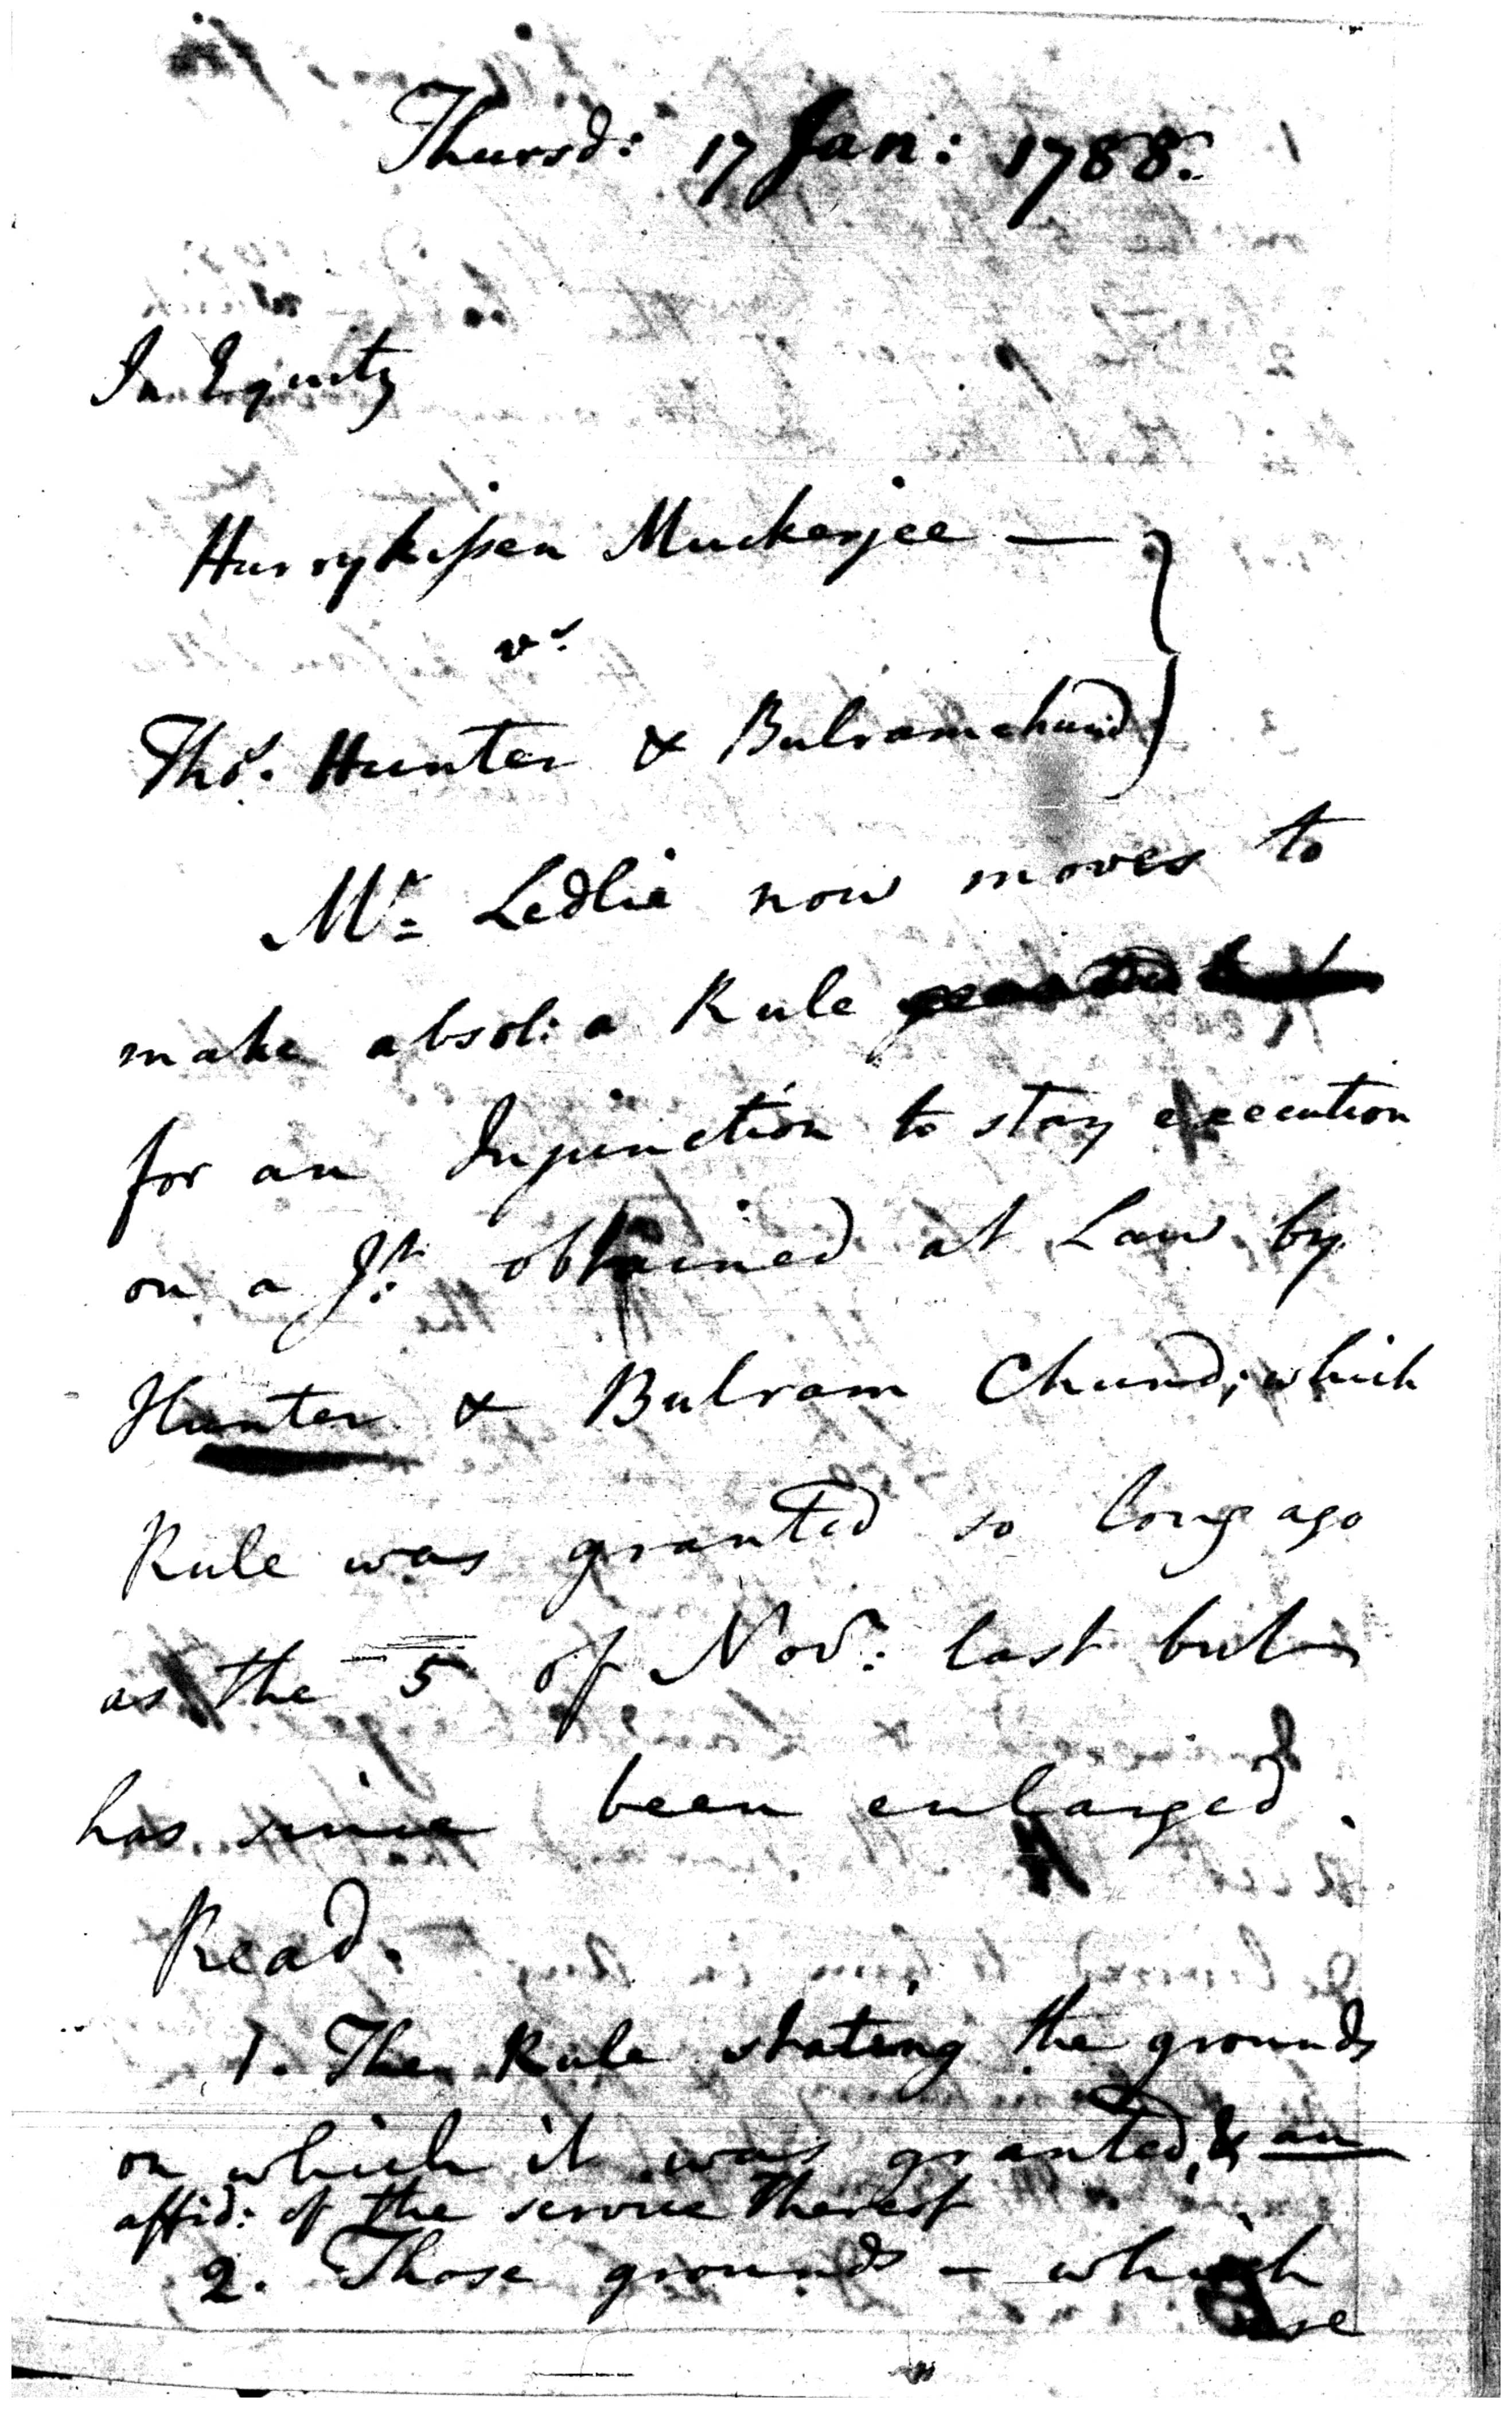 Thursd: 17 Jan: 1788.
In Equity
Hurrykissen Muckerjee —
vs
Thos. Hunter & Bulramchund
Mr. Ledlie now moves to
make absol: a Rule
for an Injunction to stay execution
on a Jt: obtained at Law by
Hunter & Bulram Chund; which
Rule was granted so long ago
as the 5 of Novr: last but
has since been enlarged.
Read.
1. The Rule stating the grounds
on which it was granted, & an
affid: of the service thereof
2. Those grounds – which